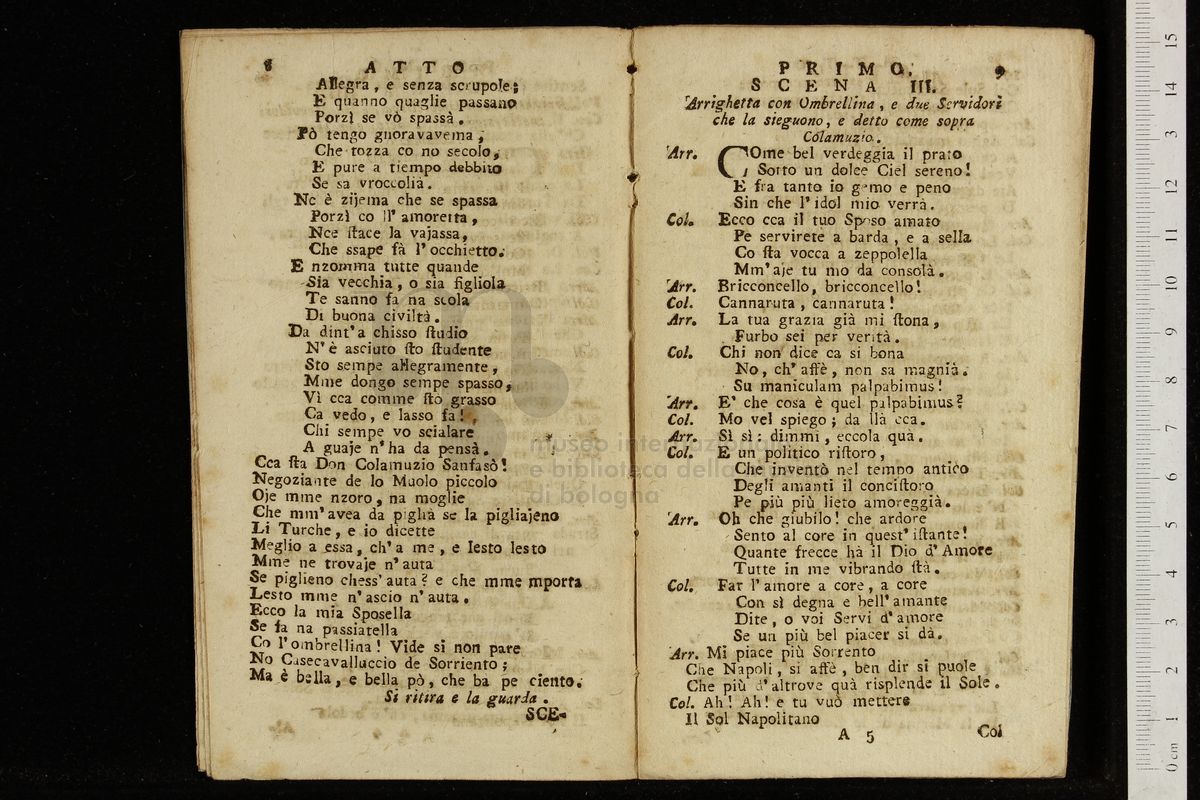 8 ATTO
Allegra, e senza scrupole;
E quanno quaglie passano
Porzì se vò spassà.
Pò tengo gnoravavema,
Che tozza co no secolo,
E pure a tiempo debbito
Se sa vroccolia.
Nc è zijema che se spassa
Porzì co ll' amoretta,
Nce ſtace la vajassa,
Che ssape fà l' occhietto.
E nzomma tutte quande
Sia vecchia, o sia figliola
Te sanno fa na scola
Di buona civiltà.
Da dint' a chisso ſtudio
N' è asciuto ſto ſtudente
Sto sempe allegramente,
Mme dongo sempe spasso,
Vì cca comme ſto grasso
Ca vedo, e lasso fa!
Chi sempe vo scialare
A guaje n' ha da pensà.
Cca ſta Don Colamuzio Sanfasò!
Negoziante de lo Muolo piccolo
Oje mme nzoro, na moglie
Che mm' avea da piglià se la pigliajeno
Li Turche, e io dicette
Meglio a essa, ch' a me, e lesto lesto
Mme ne trovaje n' auta
Se piglieno chess' auta? e che mme mporta
Lesto mme n' ascio n' auta.
Ecco la mia Sposella
Se fa na passiatella
Co l' ombrellina! Vide si non pare
No Casecavalluccio de Sorriento;
Ma è bella, e bella pò, che ba pe ciento.
Si ritira e la guarda.
SCE-
PRIMO. 9
SCENA III.
Arrighetta con Ombrellina, e due Servidori
che la sieguono, e detto come sopra
Colamuzio.
Arr. COme bel verdeggia il prato
Sotto un dolce Ciel sereno!
E fra tanto io gemo e peno
Sin che l' idol mio verrà.
Col. Ecco cca il tuo Sposo amato
Pe servirete a barda, e a sella
Co ſta vocca a zeppolella
Mm' aje tu mo da consolà.
Arr. Bricconcello, bricconcello!
Col. Cannaruta, cannaruta!
Arr. La tua grazia già mi ſtona,
Furbo sei per verità.
Col. Chi non dice ca si bona
No, ch' affè, non sa magnià.
Su maniculam palpabimus!
Arr. E' che cosa è quel palpabimus?
Col. Mo vel spiego; da llà cca.
Arr. Sì sì: dimmi, eccola quà.
Col. E un politico riſtoro,
Che inventò nel tempo antico
Degli amanti il conciſtoro
Pe più più lieto amoreggià.
Arr. Oh che giubilo! che ardore
Sento al core in quest' iſtante!
Quante frecce hà il Dio d' Amore
Tutte in me vibrando ſtà.
Col. Far l' amore a core, a core
Con sì degna e bell' amante
Dite, o voi Servi d' amore
Se un più bel piacer si dà.
Arr. Mi piace più Sorrento
Che Napoli, si affè, ben dir si puole
Che più d' altrove quà risplende il Sole.
Col. Ah! Ah! e tu vuò mettere
Il Sol Napolitano
A 5 Col
museo internazionale
e biblioteca della
di bologna
15
14
13
12
11
10
9
8
7
6
5
4
3
2
1
0 cm